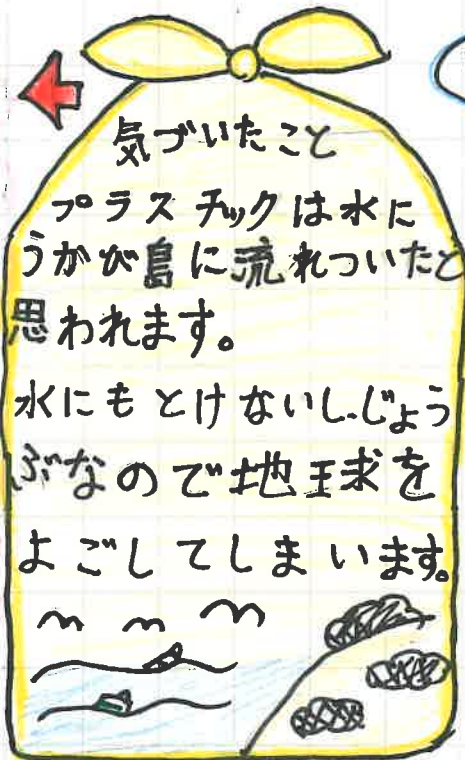 気づいたこと
プラスチックは水に
うかび島に流れついたと
思われます。
水にもとけないし、じょう
ぶなので地球を
よごしてしまいます。